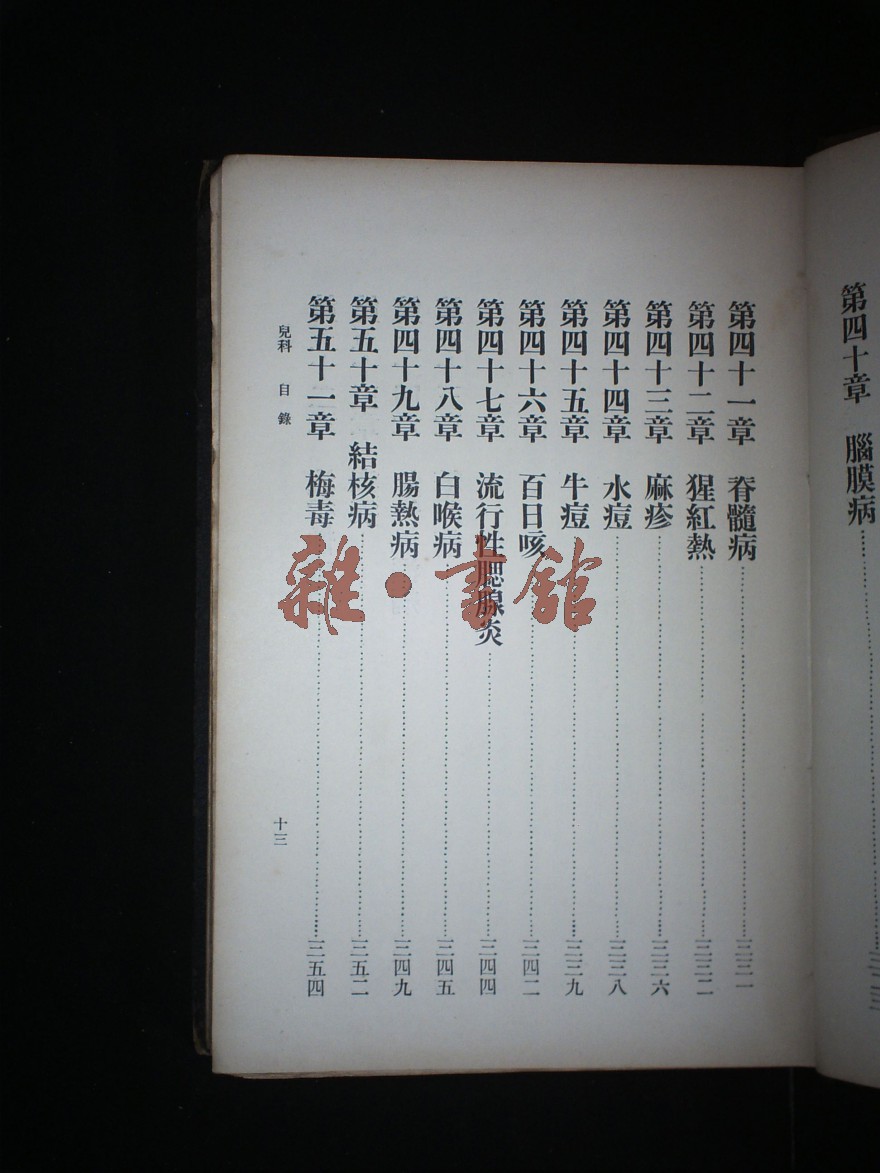 第四十章 腦膜病
第四十一章 脊髓病……三三一
第四十二章 猩紅熱……三三二
第四十三章 麻疹……三三六
第四十四章 水痘……三三八
第四十五章 牛痘……三三九
第四十六章 百日咳……三四二
第四十七章 流行性腮腺炎……三四四
第四十八章 白喉病……三四五
第四十九章 腸熱病……三四九
第五十章 結核病……三五二
第五十一章 梅毒……三五四
兒科 目錄 十三
雜·書館